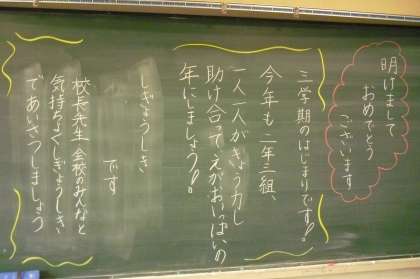 明けまして
おめでとう
ございます
三学期のはじまりです!
今年も二年三組、
一人一人がきょう力し
助け合ってえがおいっぱいの
年にしましょう!
しぎょうしき
です
校長先生 全校のみんなと
気持ちよくしぎょうしきに
であいさつしましょう